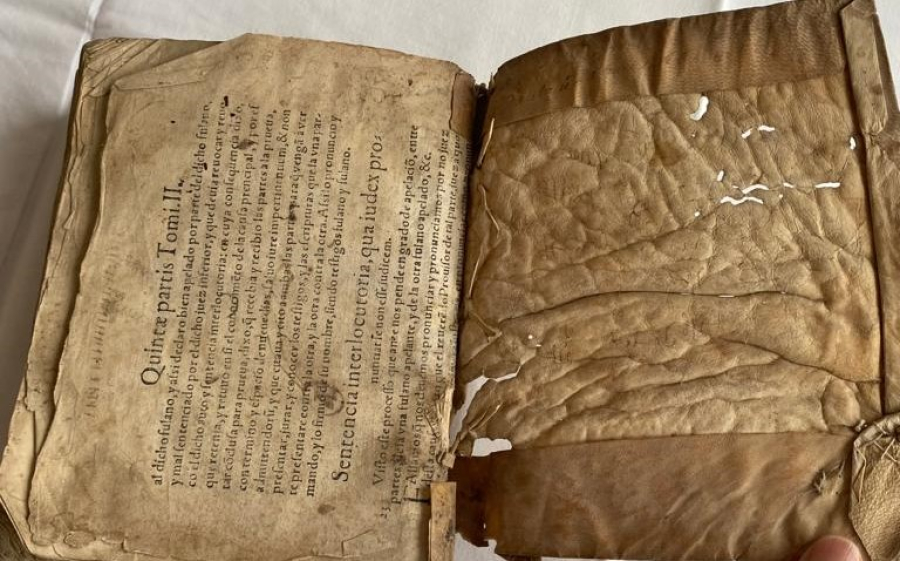 Quintæ partis Tomi. II.
al dicho fulano, y assi declaro bien apelado por parte del dicho fulano,
y mal sentenciado por el dicho juez inferior, y que deuia reuocar y reuo
co el dicho auto y sentencia interlocutoria: en cuya consequencia dixo,
que retenia, y retuuo en si el conocimiẽto de la causa principal, y por es
tar cõclusa para prueua, dixo, q̃ recebia y recibio las partes a la prueua,
con termino y espacio de nueue dias, saluo iure impertinentium, & non
admittendorũ, y que citaua y cito a ambas las partes para q̃ vengã a ver
presentar, jurar, y conocer los testigos, y las escripturas que la vna par-
te presentare contra la otra, y la otra contra la otra. Assi lo pronuncio y
mando, y lo firmo de su nombre, siendo testigos fulano y fulano.
Sentencia interlocutoria, qua iudex pro-
nuntiat se non esse iudicem.
Visto este processo que ante nos pende en grado de apelaciõ, entre
partes, de la vna fulano apelante, y de la otra fulano apelado, &c.
Fallamos q̃ nos deuemos pronunciar y pronunciamos por no juez